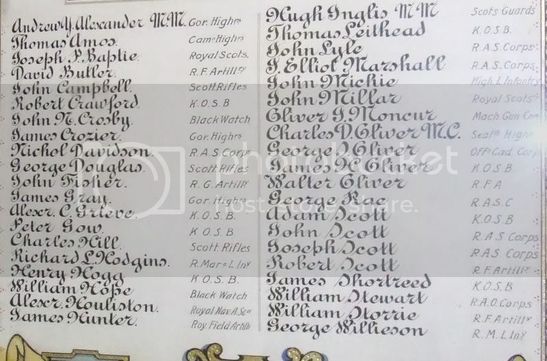 Andrew Y. Alexander M.M. Gor. Highrs
Thomas Amos. Camn Highrs
Joseph P. Baptie. Royal Scots.
David Butler. R.F. Artilly
John Campbell. Scott. Rifles
Robert Crawford K.O.S.B
John N. Crosby. Black Watch
James Crozier. Gor. Highrs
Nichol Davidson. R.A.S. Corps
George Douglas. Scott Rifles
John Fisher. R.G. Artilly
James Gray. Gor. High
Alexr. C. Grieve. K.O.S.B.
Peter Gow. K.O.S.B.
Charles Hill. Scott. Rifles
Richard L. Hodgins. R. Mar. L. Iny
Henry Hogg K.O.S.B.
William Hope Black Watch
Alexr. Houliston. Royal Nav. A. Sen
James Hunter. Roy. Field Artilly
Hugh Inglis M M Scots Guards
Thomas Leithead K.O.S.B.
John Lyle R.A.S. Corps
J. Elliot Marshall R.A.S. Corps
John Michie High. L. Infantry
John Millar Royal Scots
Oliver J. Moncur Mach. Gun Cor
Charles D. Oliver M.C. Seath Highr
George L. Oliver Off. Cad. Corps
James K. Oliver K.O.S.B
Walter Oliver R.F.A
George Rae R.A.S.C
Adam Scott K.O.S.B
John Scott R.A.S. Corps
Joseph Scott R.A.S. Corps
Robert Scott R.F. Artilly
James Shortreed K.O.S.B
William Stewart R.A.O. Corps
William Storrie R.F. Artilly
George Willieson R.M.L. Iny
photobucket